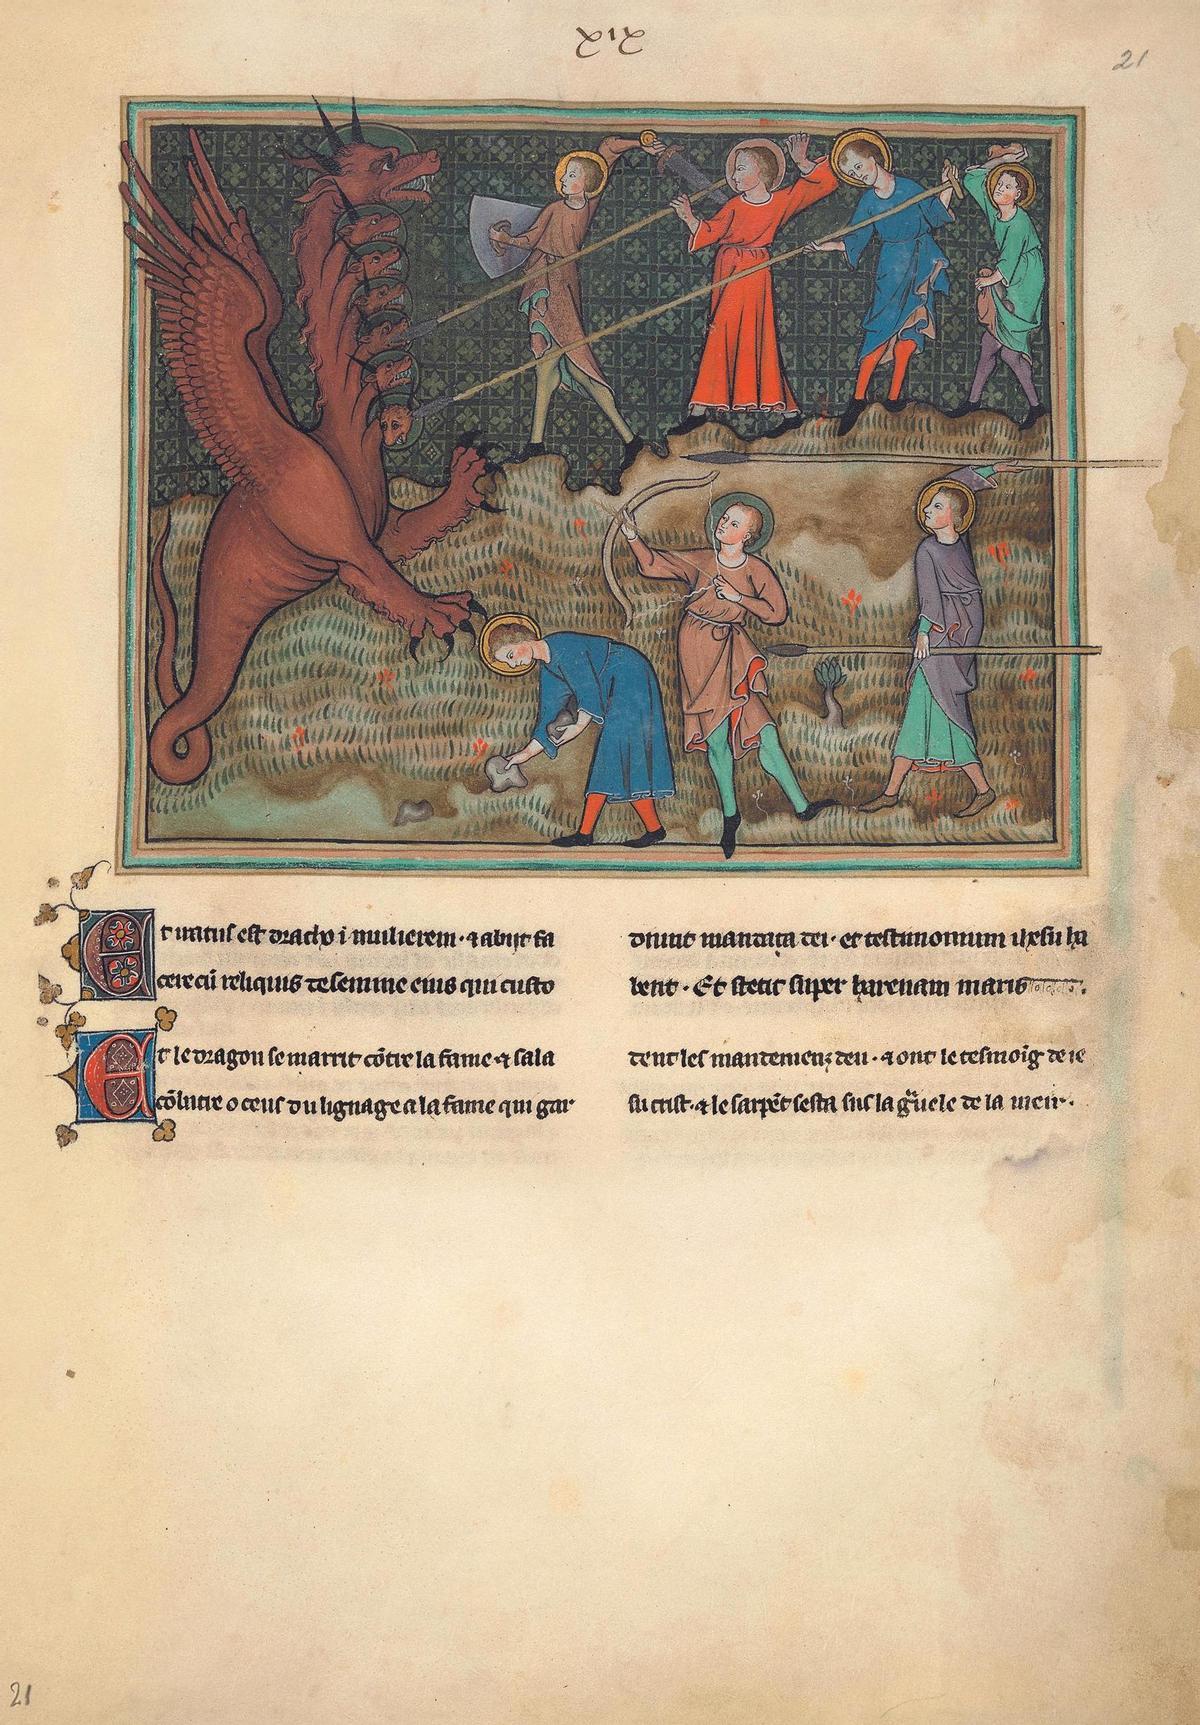 21
Et iratus est dracho ĩ mulierem · ⁊ abijt fa
cere cũ reliquis de semine eius qui custo
diunt mandata dei · et testimonium ihesu ha
bent · Et stetit super harenam maris
Et le dragon se marrit cõtre la fame ⁊ sala
cõbatre o ceus du lignage a la fame qui gar
dent les mandemenz deu · ⁊ ont le tesmoig de ie
su crist · ⁊ le sarpẽt sesta sus la g̃uele de la meir ·
21